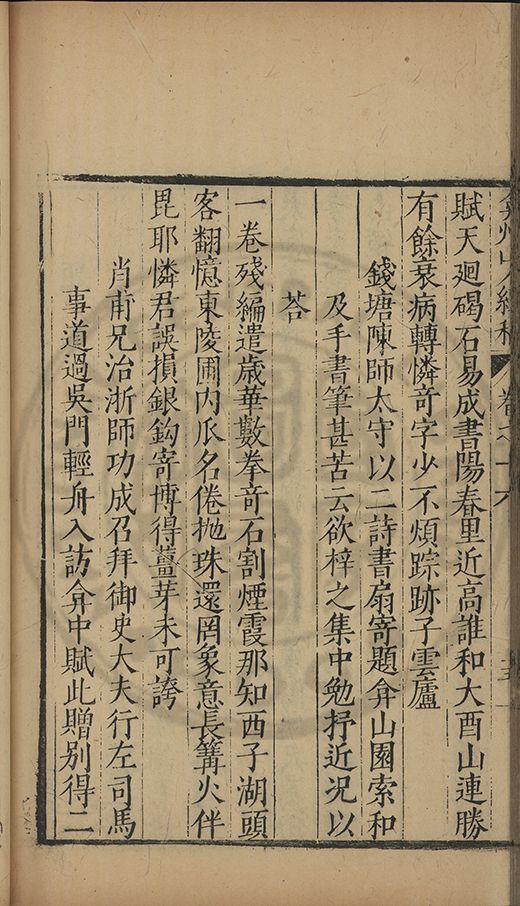 弇州山人續稿 卷之十六
賦天廻碣石易成書陽春里近高誰和大酉山連勝
有餘衰病轉憐竒字少不煩踪跡子雲廬
錢塘陳師太守以二詩書扇寄題弇山園索和
及手書筆甚苦云欲梓之集中勉抒近况以
荅
一卷殘編遣歲華數拳竒石割煙霞那知西子湖頭
客翻憶東陵圃内瓜名倦抛珠還罔象意長篝火伴
毘耶憐君誤損銀鈎寄博得薑芽未可誇
肖甫兄治浙師功成召拜御史大夫行左司馬
事道過吳門輕舟入訪弇中賦此贈别得二